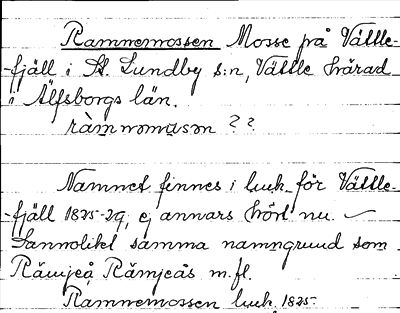 Rammemossen Mosse på Vättle-
-fjäll i St. Lundby s:n, Vättle härad
i Älfsborgs län.
ràmmomᴀsᴏn ? ?
Namnet finnes i luch för Vättle-
-fjäll 1825-29, ej annars hört nu.
Sannolikt samma namngrund som
Rämjeå, Rämjeås m.fl.
Rammemossen luch 1825.